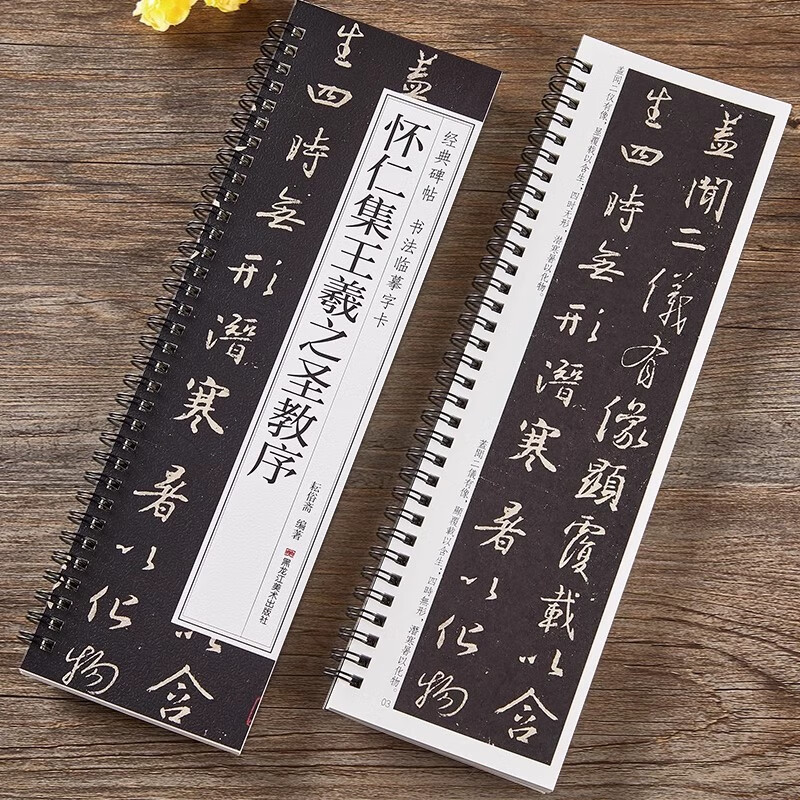 蓋
以含
生四時無形潛寒暑以化物
经典碑帖 书法临摹字卡
怀仁集王羲之圣教序
耘俗斋 编著
黑龙江美术出版社
蓋聞二儀有像顯覆載以含
生四時無形潛寒暑以化物
盖闻二仪有像，显覆载以含生；四时无形，潜寒暑以化物。
蓋聞二儀有像，顯覆載以含生；四時無形，潛寒暑以化物
03